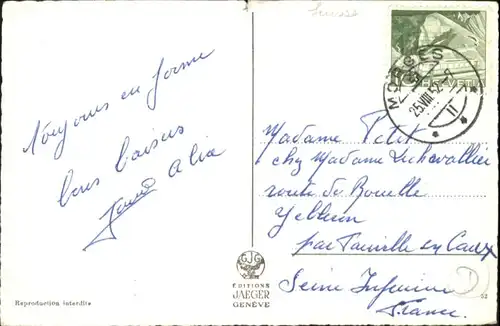 Suisse
Toujours en forme
bons baisers
HELVETIA
MORGES
25.VIII.52-7
Madame Petit
chez Madame Lechevallier
route de Rouelle
par Fauville en Caux
Seine Inférieure
France
GJG
EDITIONS
JAEGER
GENÈVE
Reproduction interdite